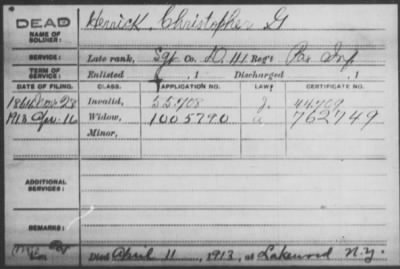 DEAD Herrick, Christopher G
NAME OF SOLDIER:
SERVICE: Late rank, Sgt Co. D, 141 Reg't Pa Inf
TERM OF SERVICE: Enlisted , 1 Discharged , 1
DATE OF FILING. CLASS. APPLICATION NO. LAW. CERTIFICATE NO.
1864 28 Invalid, 55708 44709
1913 Apr. 16 Widow, 1005790 762749
Minor,
ADDITIONAL SERVICES:
REMARKS:
Died April 11, 1913, at Lakewood N.Y.